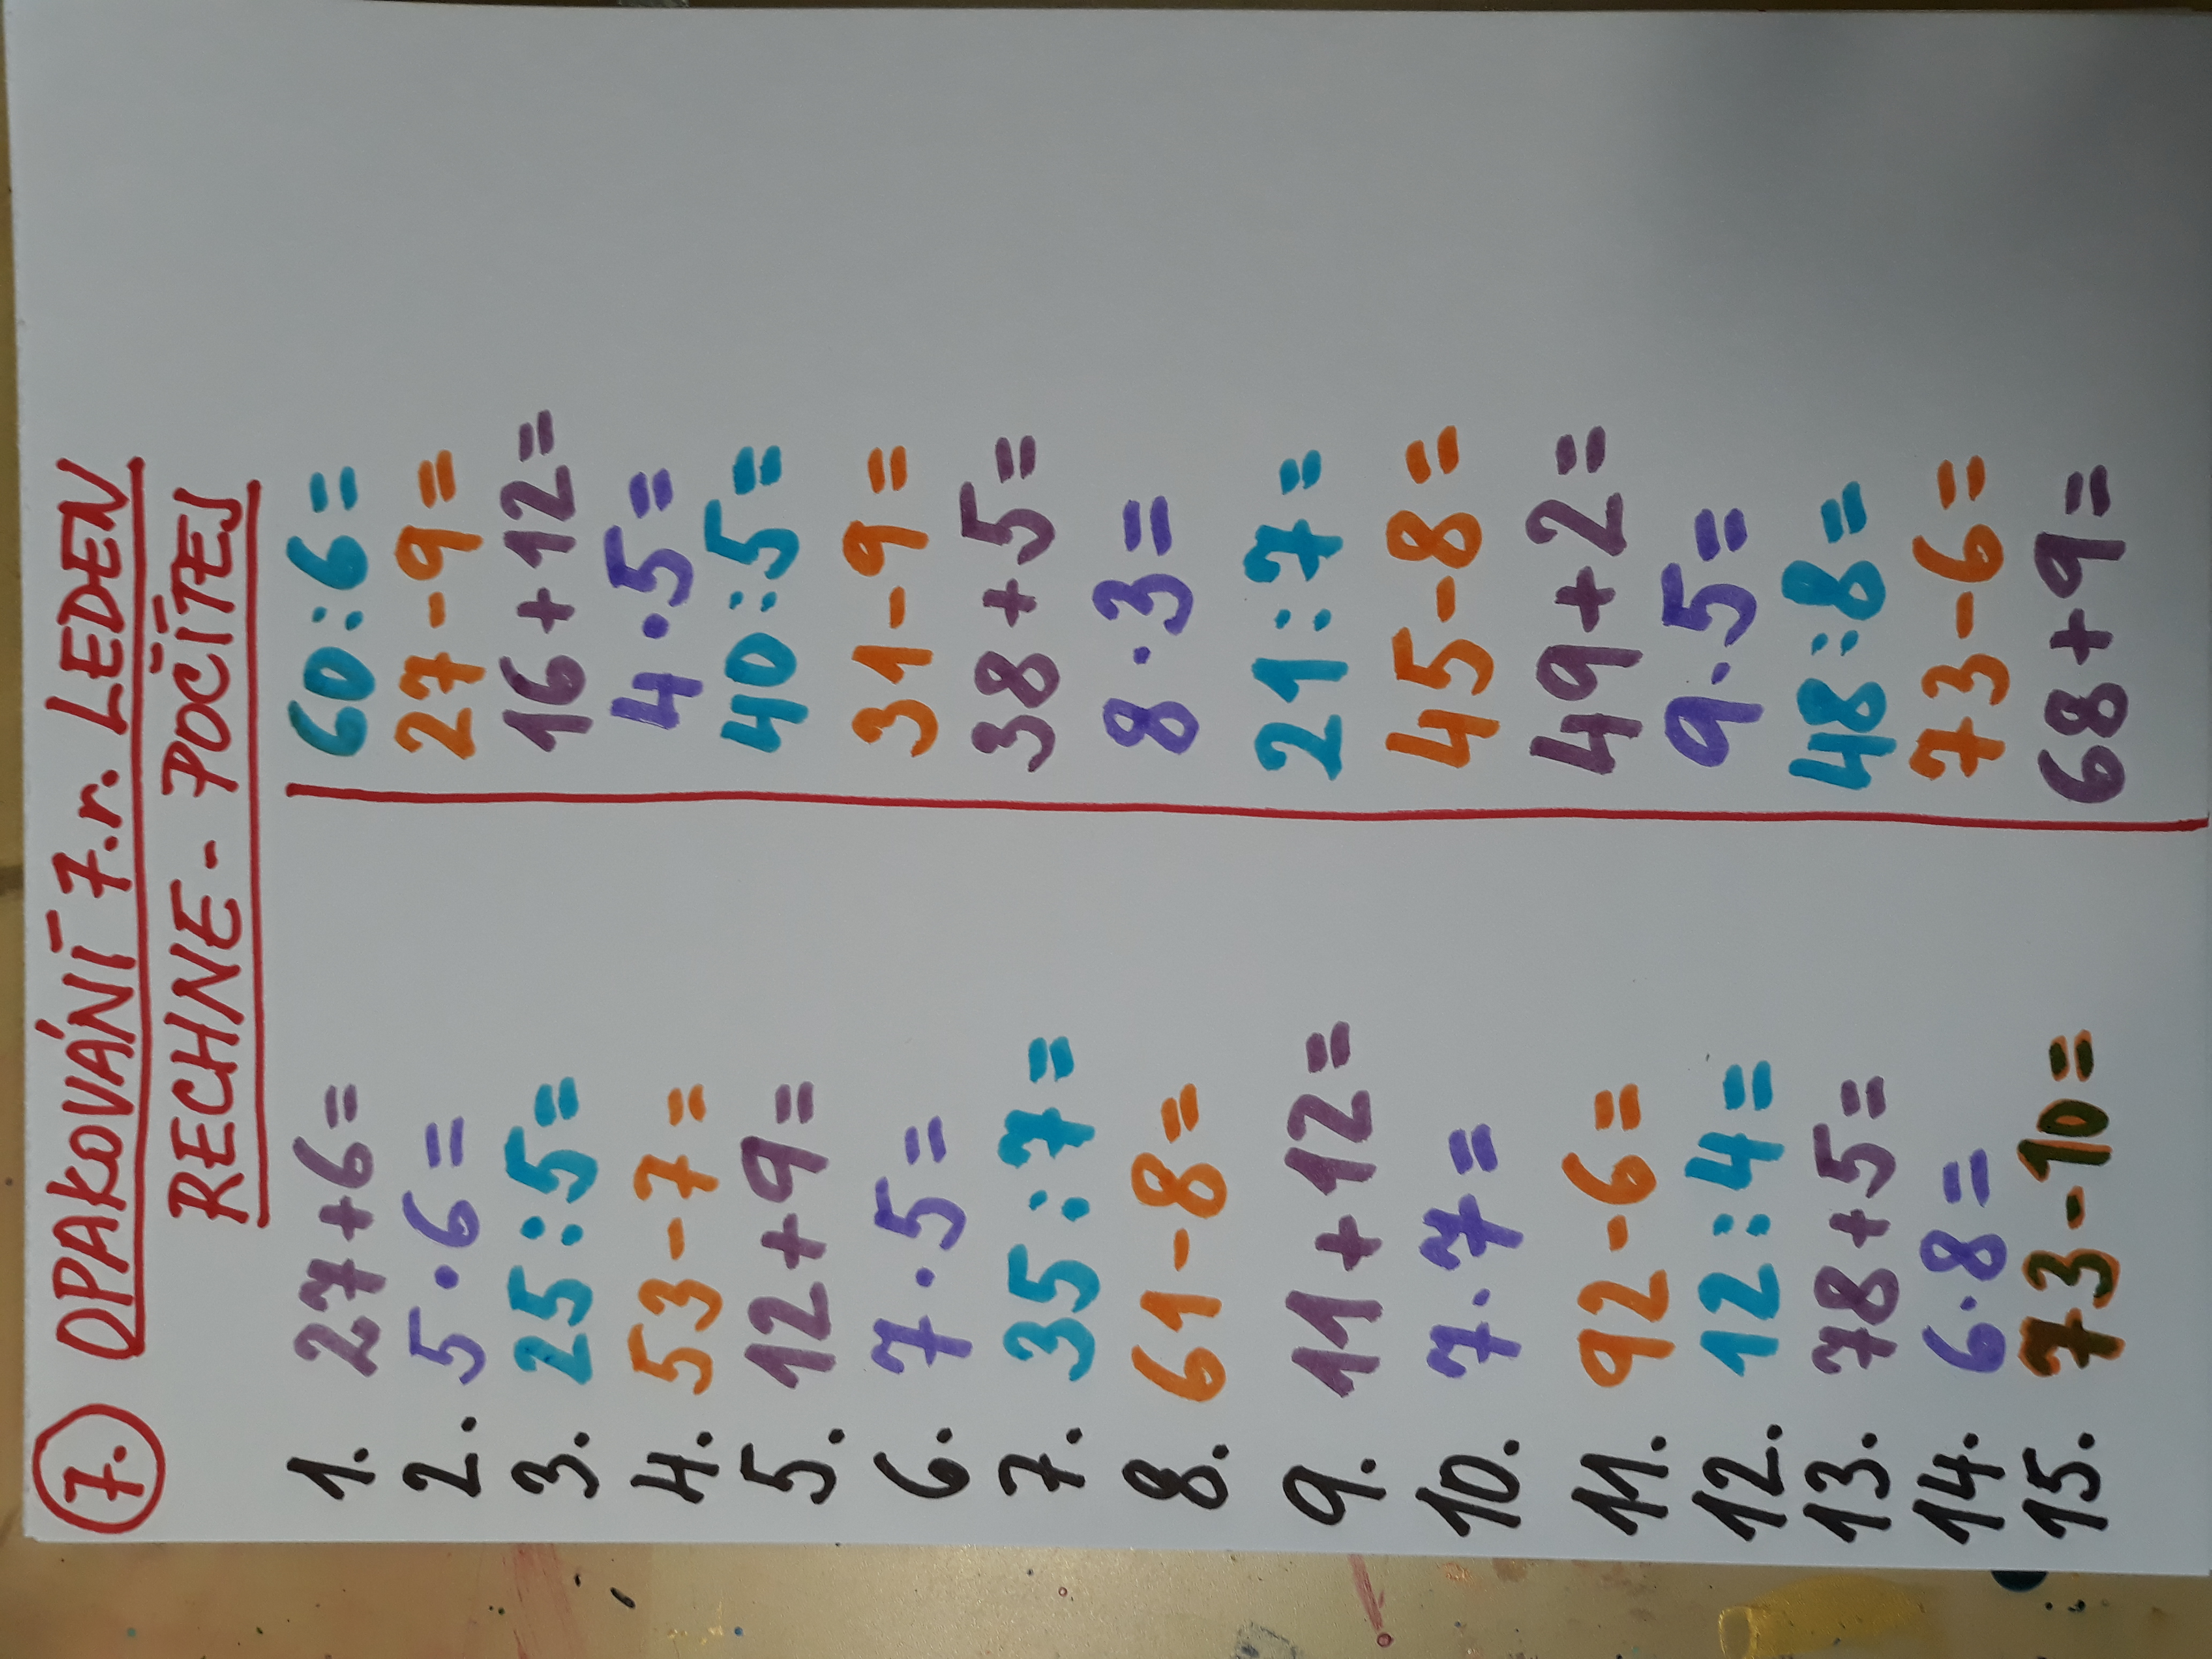 7. OPAKOVÁNÍ 7.r. LEDEN
RECHNE - POČÍTEJ
1. 27+6= 60:6=
2. 5·6= 27-9=
3. 25:5= 16+12=
4. 53-7= 4·5=
5. 12+9= 40:5=
6. 7·5= 31-9=
7. 35:7= 38+5=
8. 61-8= 8·3=
9. 11+12= 21:7=
10. 7·7= 45-8=
11. 92-6= 49+2=
12. 12:4= 9·5=
13. 78+5= 48:8=
14. 6·8= 73-6=
15. 73-10= 68+9=